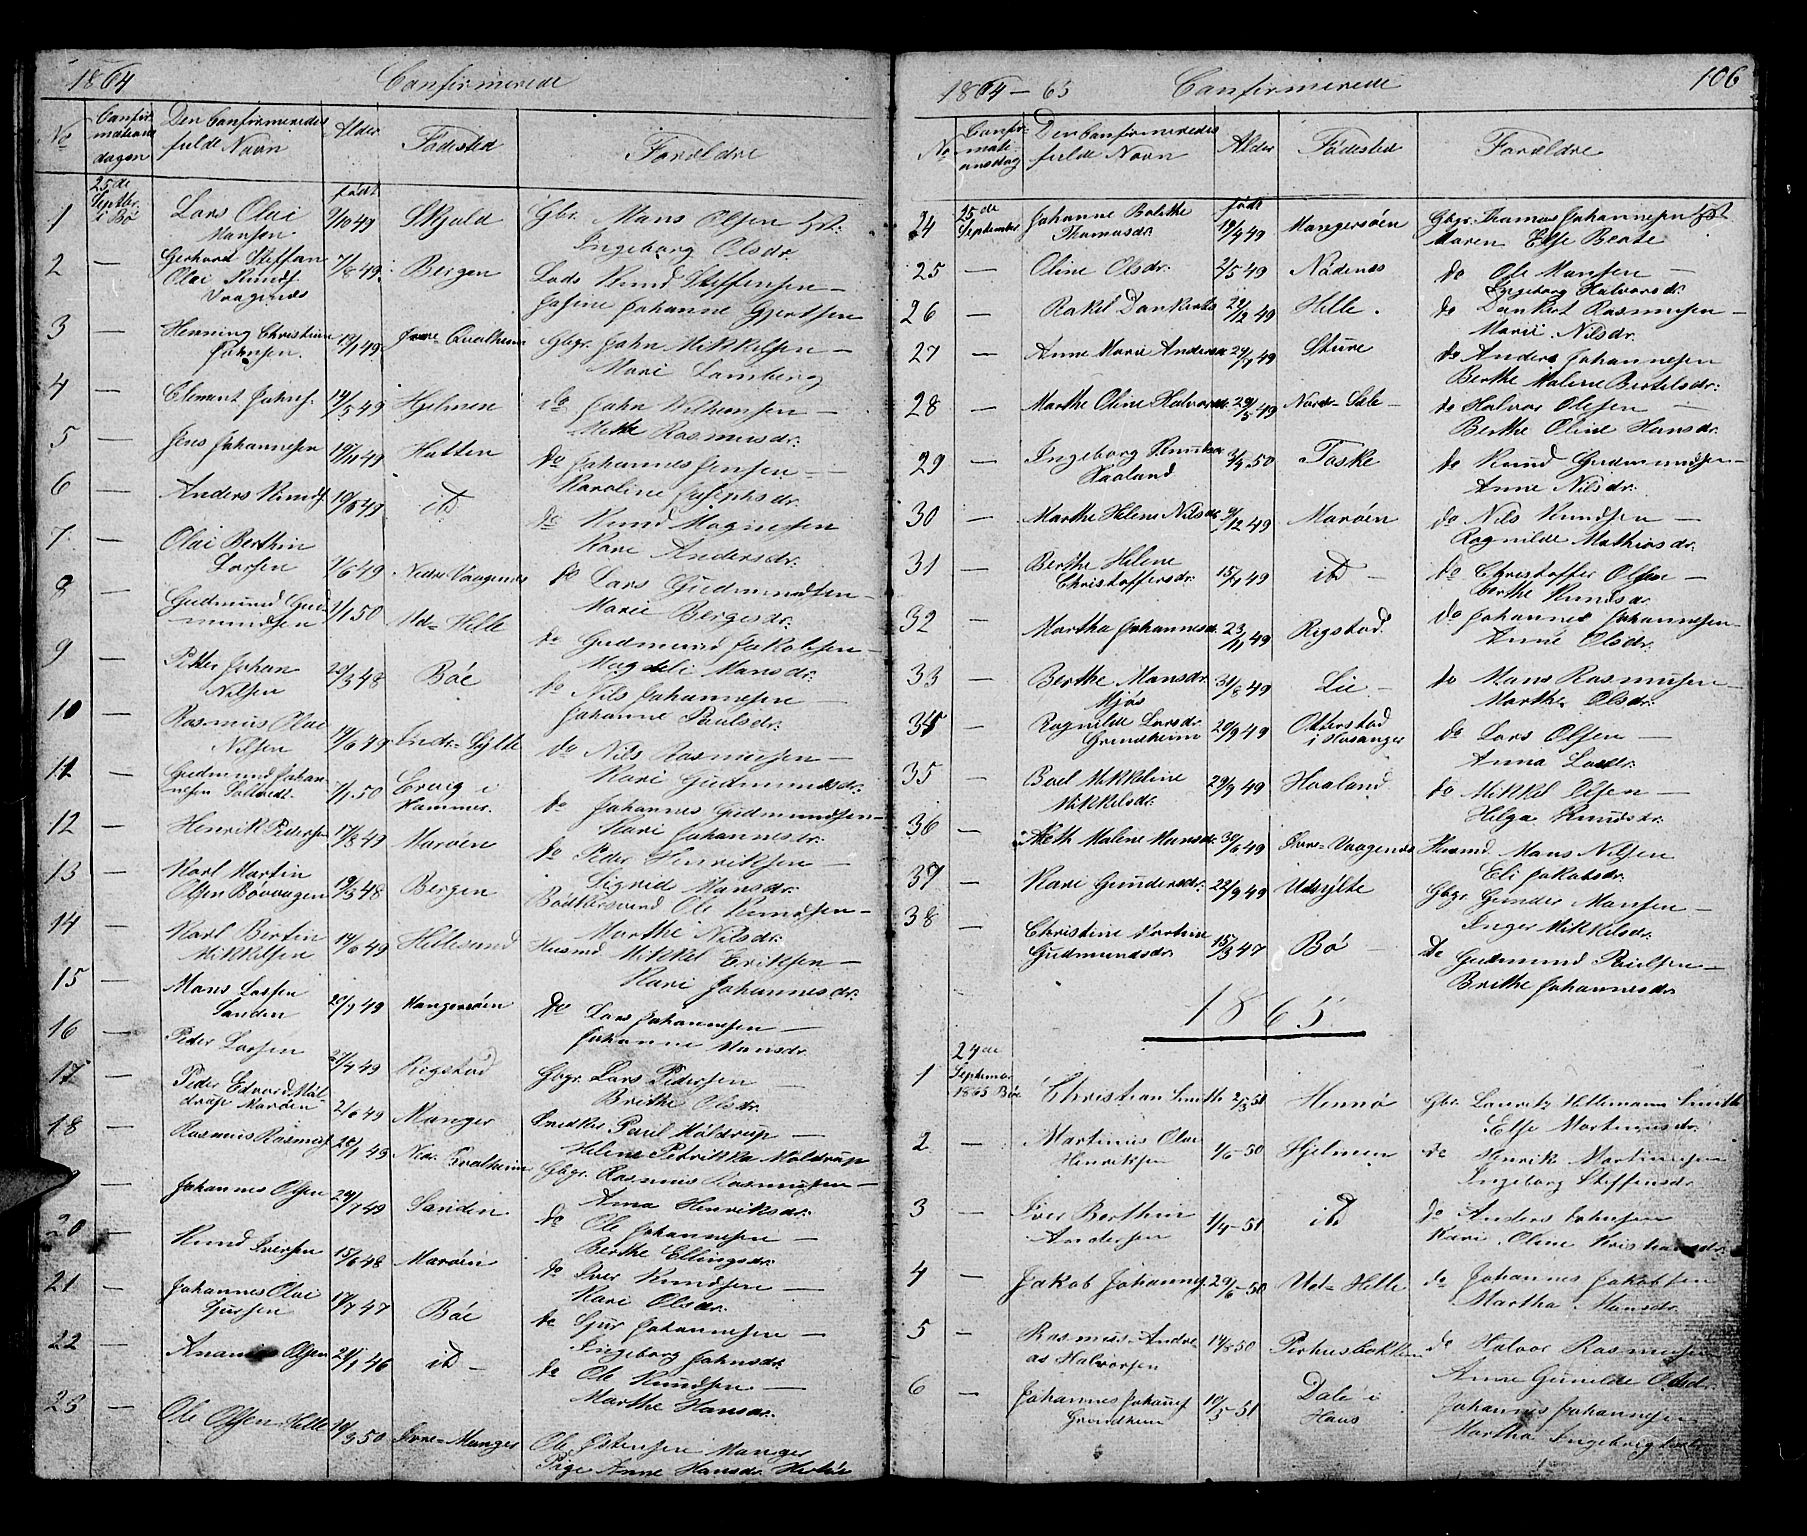 1864 Confirmerede
No Confirmationsdagen Den Confirmeredes fulde Navn Alder Fødested Forældre
25de Septbr. i Bø født
1 Lars Olai Mansen 9/10 49 Skjold Gbr. Mans Olsen
Ingeborg Olsdr.
2 — Gerhard Steffan Olai Knuds. Vaagenæs 7/8 49 Bergen Lods Knud Steffensen —
Johanne Gjertsen
3 — Henning Christian Johnsen 49 Qvalheim Gbgr. John Mikkelsen —
Mari Lamberg
4 — Clement Johns. 19/5 49 Hjelmen do John Willumsen —
Rasmusdr.
5 — Jens Johannesen 19/11 49 Hatten do Johannes Jensen —
Karoline Josephsdr.
6 — Anders Knuds. 49 id do Knud Magnesen
Kari Andersdr.
7 — Olai Berthin Larsen 1/6 49 Nedre Vaagenes do Lars Gudmundsen —
Marie Bergesdr.
8 — Gudmund Gudmundsen 1/1 50 Ud= Hille do Gudmund Jakobsen —
Magdeli Mansdr.
9 — Petter Johan Nilsen 3 48 Bøe do Nils Johannesen —
Johanne Paulsdr.
10 — Rasmus Olai Nilsen 49 Indr= Sylte do Nils Rasmusen —
Kari Gudmundsdr.
11 — Gudmund Johannesen 7/1 50 i Hammer. do Johannes Gudmundsen —
Kari Johannesdr.
12 — Henrik Pedersen 17/8 49 Marøen do Peder Henriksen —
Sigrid Hansdr.
13 — Karl Martin Olsen Bøvaagen 19/3 48 Bergen Bødkersvend Ole Knudsen —
Marthe Nilsdr.
14 — Karl Bertin Mikkelsen 14/6 49 Hillesund Husmd Mikkel Eriksen —
Kari Johannesdr.
15 — Mans Larsen Sanden 49 Mangersøen do Lars Johannesen —
Johanne Mansdr.
16 — Peder Larsen 49 Rigstad Gbgr. Lars Pedersen —
Brithe Olsdr.
17 — Peder Edvard Møldrup Marøen 2/6 49 Manger Snedker Paul Møldrup —
Helene Petrikka Møldrup
18 — Rasmus Rasmus. 49 Ned. Qvalheim Gbgr. Rasmus Rasmusen —
Anna Henriksdr.
— Johannes Olsen 49 Sanden do Ole Johannesen
Berthe Ellingsdr.
20 — Knud Iversen 15/6 48 Marøen do Iver Knudsen —
Kari Olsdr.
21 — Johannes Olai Sjursen 17/7 47 Bøe do Sjur Johannesen —
Ingeborg Johnsdr.
22 — Olsen 46 id — do Ole Knudsen —
Marthe Hansdr.
23 — Ole Olsen Hille 3 50 Øvre= Manger Ole Østensen Manger
Pige Anne Hansdr.
1864 — 65 Confirmerede 106
No Confirmationsdag Den Confirmeredes fulde Navn Alder Fødested Forældre
24 25de September Johanne Thomasdr. født 49 Mangersøen Gbgr. Thomas Johannesen
Maren Else Bente
25 — Oline Olsdr. 2/5 49 Nødenes do Ole Mansen —
Ingeborg Halvorsdr.
26 — Rakel Dankerts 12 49 Hille. do Dankert Rasmusen —
Marie Nilsdr.
27 — Anne Marie Anders 49 Sture do Anders Johannesen
Berthe Malene Bertelsdr.
28 — Marthe Oline Halvors 29/5 49 do Halvor Olesen —
Berthe Oline Hansdr.
29 — Ingeborg Knuts 50 Toske do Knud Gudmundsen —
Anne Nilsdr.
30 — Marthe Helene Nilsdr 12 49 Marøen do Nils Knudsen —
Ragnilde Mathiasdr.
31 — Berthe Helene Christoffersdr. 15/1 49 id — do Christoffer Olsen —
Berthe Knudsdr.
32 — Martha Johannesdr 23/11 49 Rigstad do Johannes Johannesen —
Anne Olsdr.
33 — Berthe Mansdr. Mjøs 31/8 49 Lie — do Mans Rasmusen —
Marthe Olsdr.
34 — Ragnilde Larsdr. Grindheim 20/9 49 Otterstad i Hosanger do Lars Olsen —
Anna Larsdr.
35 — Boel Mikkeline Mikkelsdr. 29/9 49 Haaland do Mikkel Olsen —
Helga Knudsdr.
36 — Meth Malene Mansdr. 30/6 49 Øvre= Vaagenes Husmd Mans Nilsen
Eli Jakobsdr.
37 — Kari Gundersdr. 22/9 49 Udsylte Gbgr Gunder Mansen —
Inger Mikkelsdr.
38 — Christine Gudmundsdr. 15/3 47 Bø — Do Gudmund Paulsen —
Brithe Johannesdr.
1865
1 24de September 1865 Bøe Christian Smith 2/3 51 Hennø Gbr. Lauritz Hillemann Smith
Else Martinusdr.
2 — Martinus Olai Henriksen 1/6 – 50 Hjelmen do Henrik Martinusen
Ingeborg Steffensdr.
3 — Iver Berthin Andersen 1/4 – 51 id do Anders Johnsen
Kari Oline Kristiansdr.
4 — Jakob Johannes. 29/6 – 50 Ud= Hille do Johannes Jakobsen
Martha Mansdr.
5 — Rasmus Andreas Halvorsen 14/8 50 do Halvor Rasmusen
Anne Gunilde Olsdr.
6 — Johannes Johannes. 10/5 – 51 Dale i Haus Johannes Johannesen
Martha